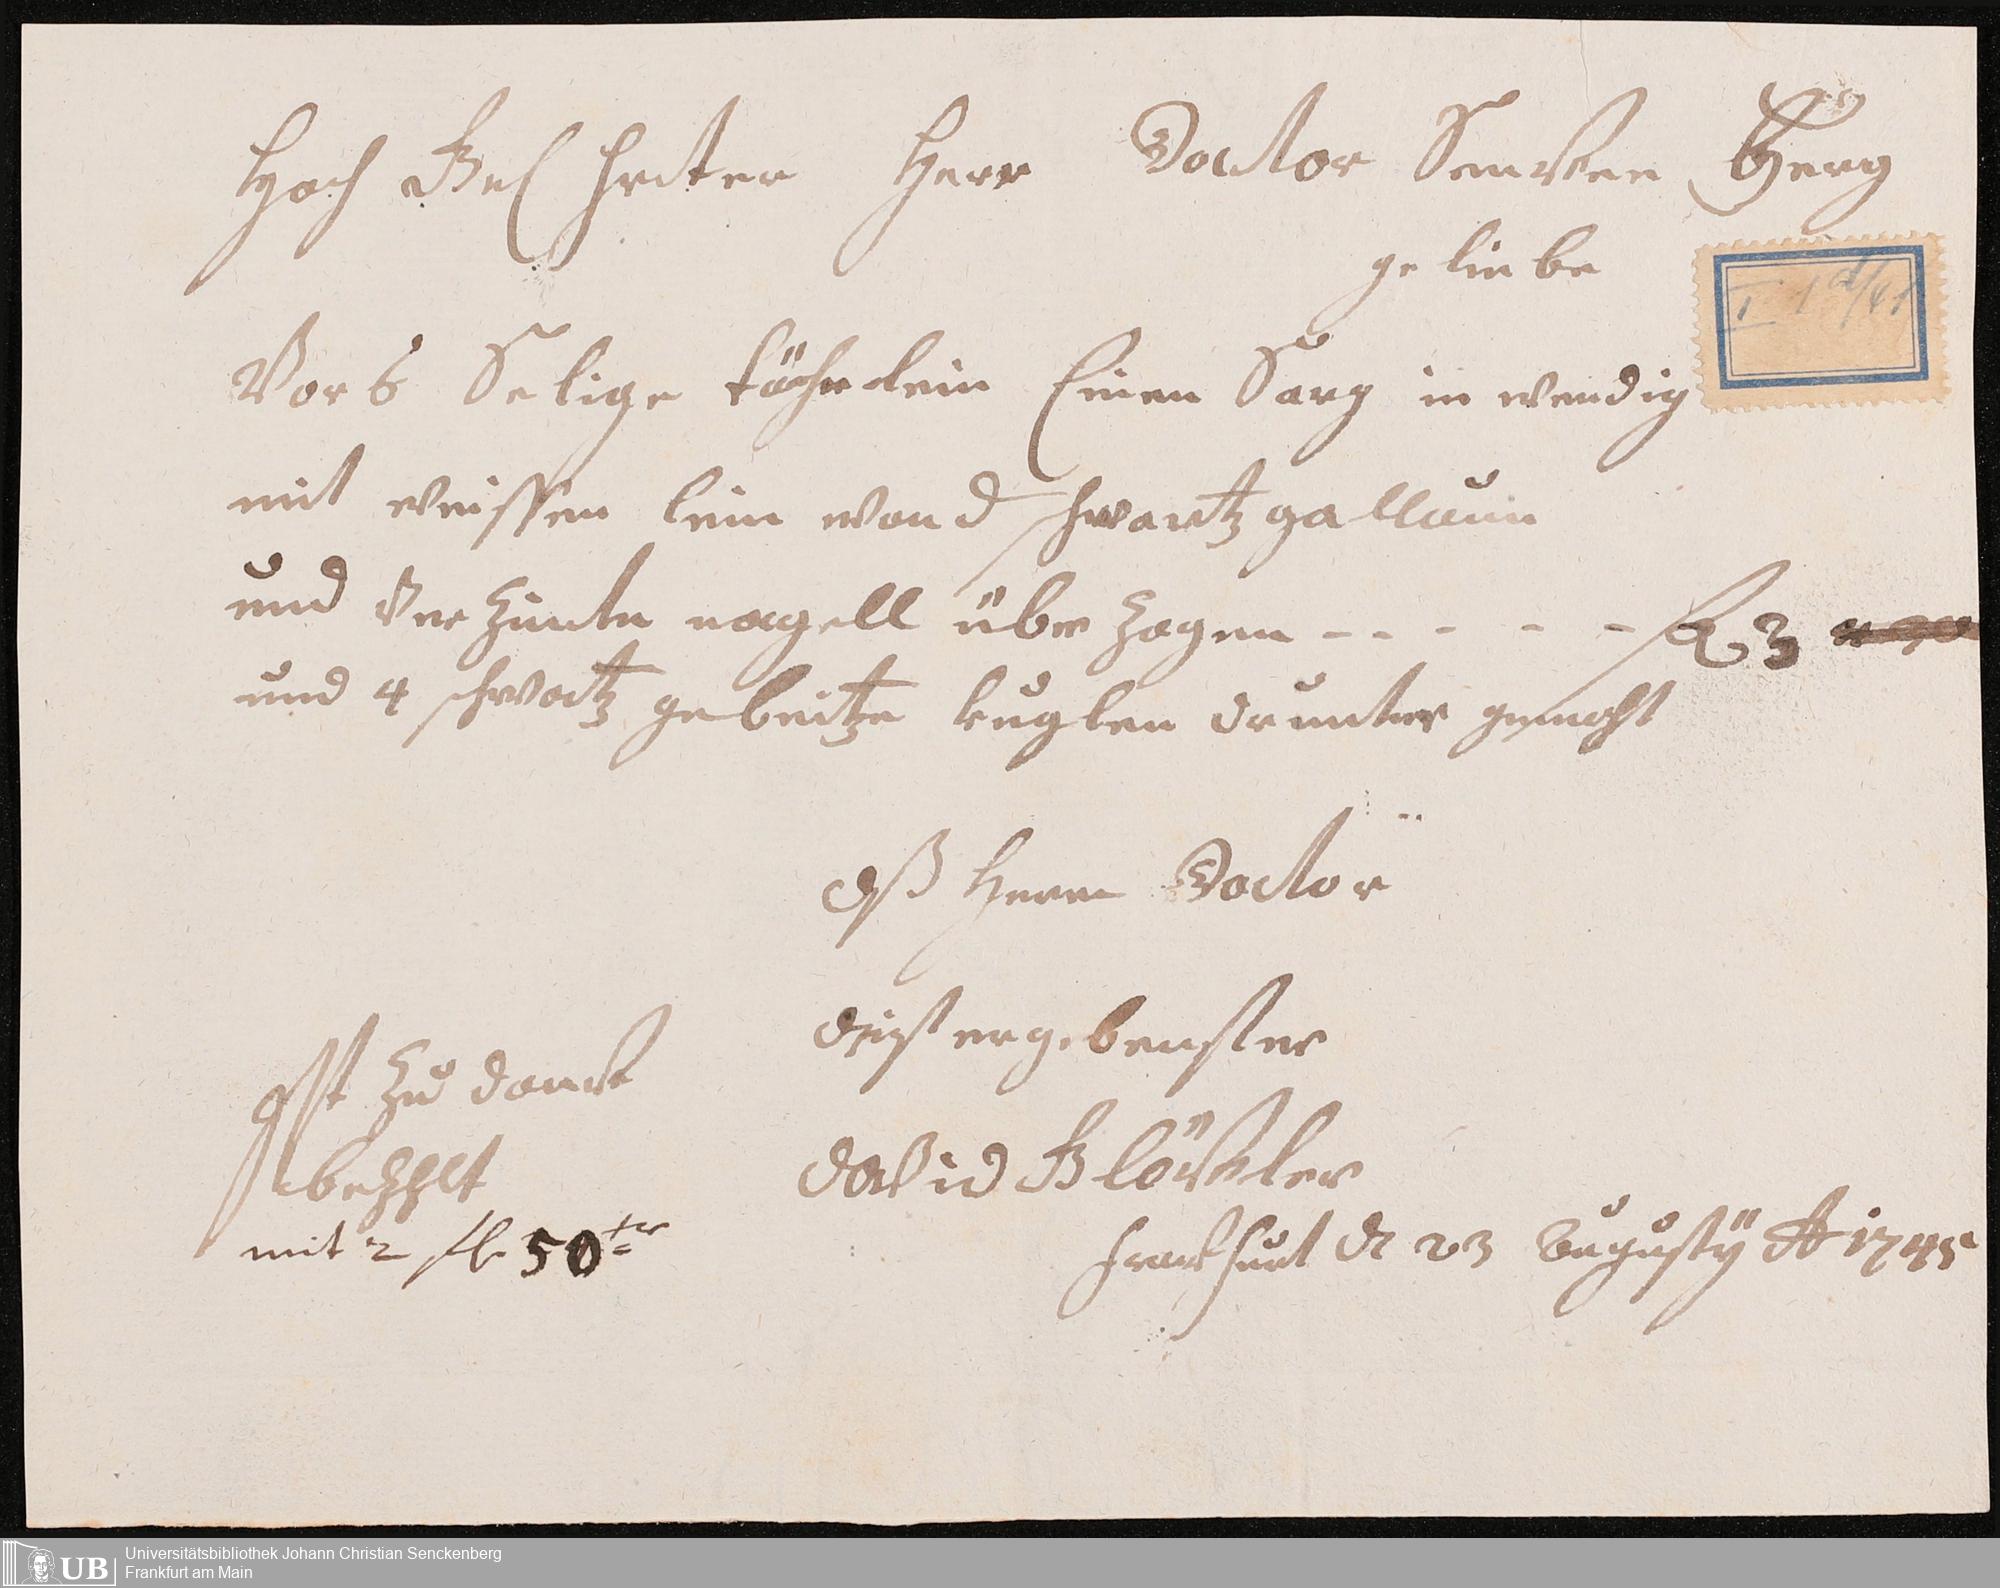 Hoch Gel hrter Herr Doctor Sencken Berg
geliebe
Vor 6 Selige töchrlein Einen Sarg in wendig
mit weissen lein wand schwartz gallaun
und Ver Zinte nagell über Zogen - - - - - fl 3
und 4 schwartz gebeitze kuglen drunter gemacht
deß Herrn Doctor
dinst ergebenster
David Blöckler
franckfurt d 23 Augusty Ao 1745
Ist Zu danck
bezhlt
mit 2 fl. 50 xr
I 1 d/41
UB
Universitätsbibliothek Johann Christian Senckenberg
Frankfurt am Main